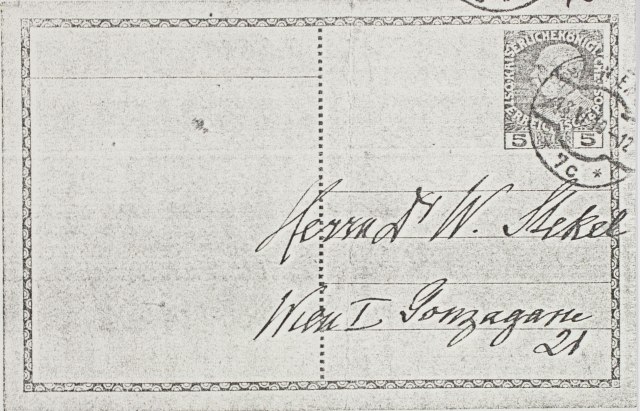 KAISERLICHE KÖNIGLICHE
5 5
7c *
Herrn Dr W. Stekel
Wien I Gonzagagasse
21